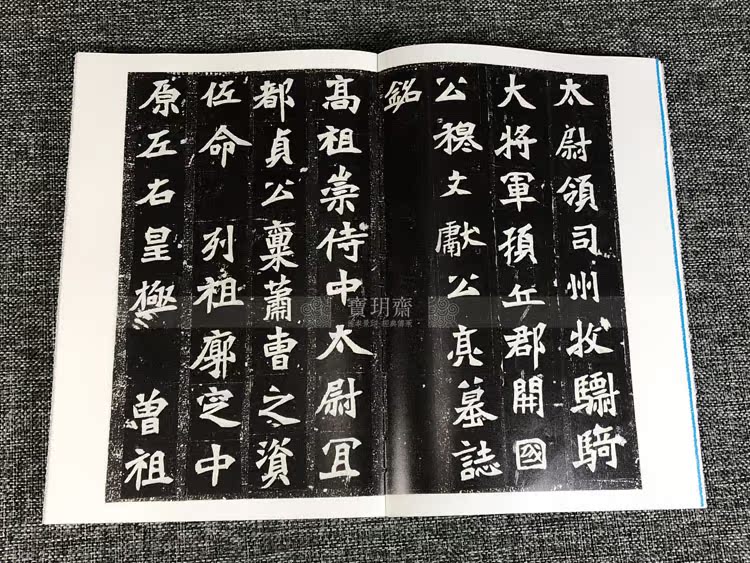 太尉領司州牧驃騎
大將軍頓丘郡開國
公穆文獻公亮墓誌
銘
高祖崇侍中太尉宜
都貞公稟蕭曹之資
佐命 列祖廓定中
原左右皇極 曾祖
寶玥齋